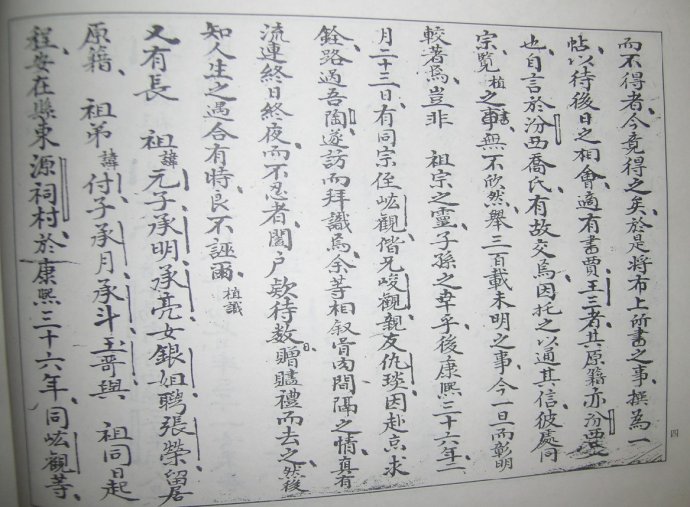 而不得者今竟得之矣於是将布上所書之事撰為一
帖以待後日之相會適有書賈王三者其原籍亦汾西
也自言於汾西喬氏有故交焉因托之以通其信彼處同
宗覽植之書事無不欣然舉三百載未明之事今一旦而彰明
較著焉豈非 祖宗之靈子孫之幸乎後康熙三十六年二
月二十三日有同宗侄峵觀偕兄峻觀親友仇琰因赴京求
銓路過吾陶遂訪而拜識焉余等相叙骨肉間隔之情真有
流連終日終夜而不忍者闔户款待数日贈贐禮而去之然後
知人生之遇合有時良不誣爾 植識
又有長 祖諱元子承明承亮女銀姐聘張榮留居
原籍 祖弟諱付子承月承斗玉哥與 祖同日起
程安在縣東源祠村於康熙三十六年同峵觀等
四